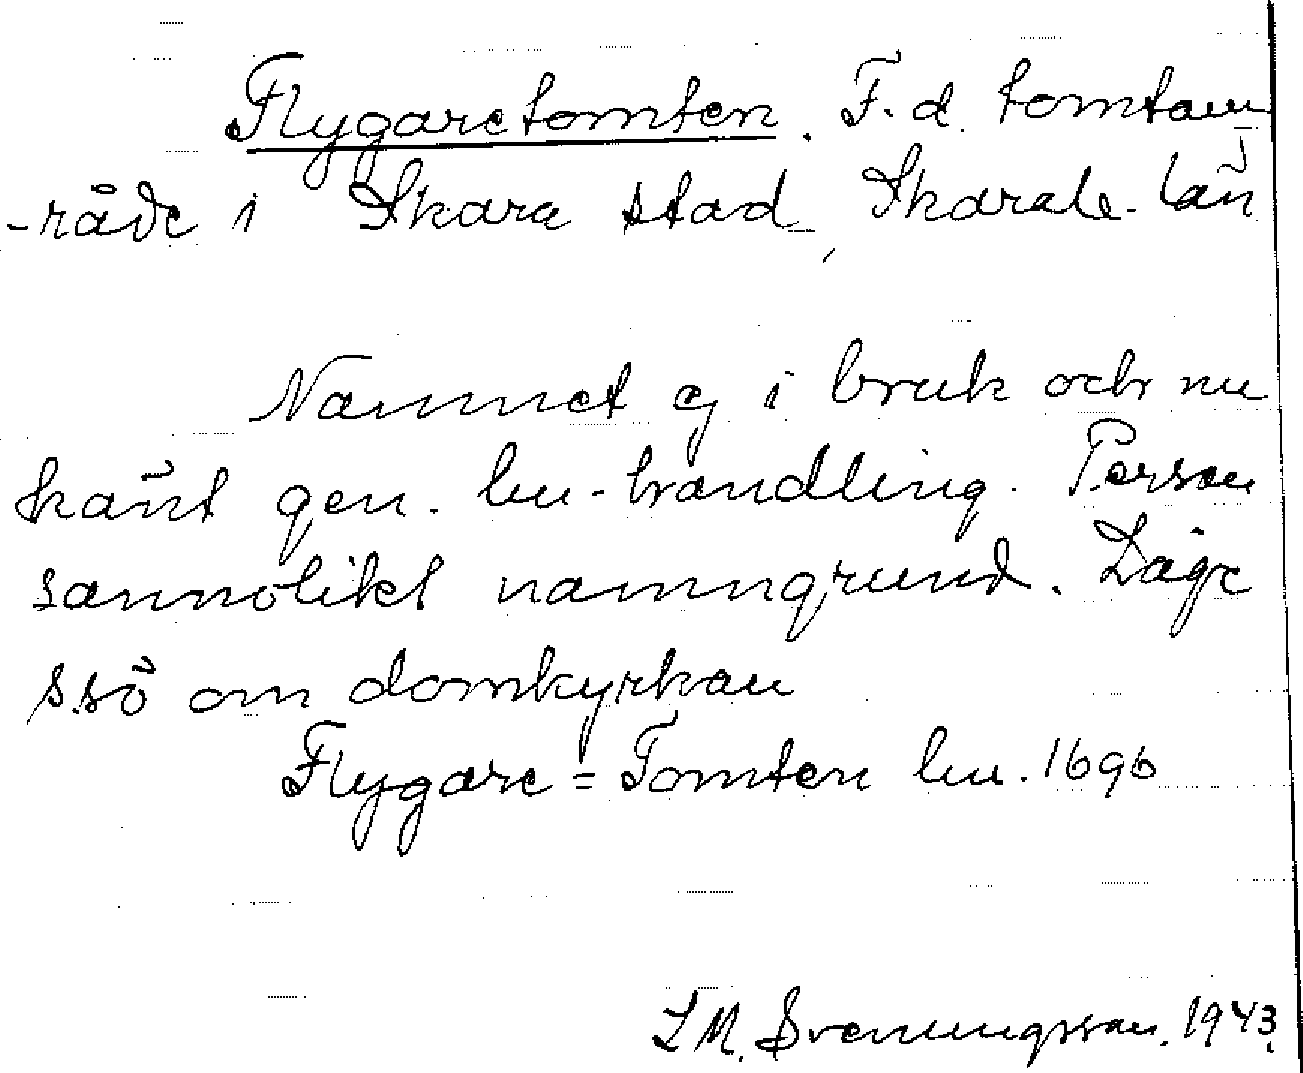 Flygaretomten. F.d. tomtom
-råde i Skara stad, Skarab. län
Namnet ej i bruk och nu
känt gen. lm-handling. Person
sannolikt namngrund. Läge
s.sö om domkyrkan
Flygare=Tomten lm. 1696
L M. Svenungsson. 1943.